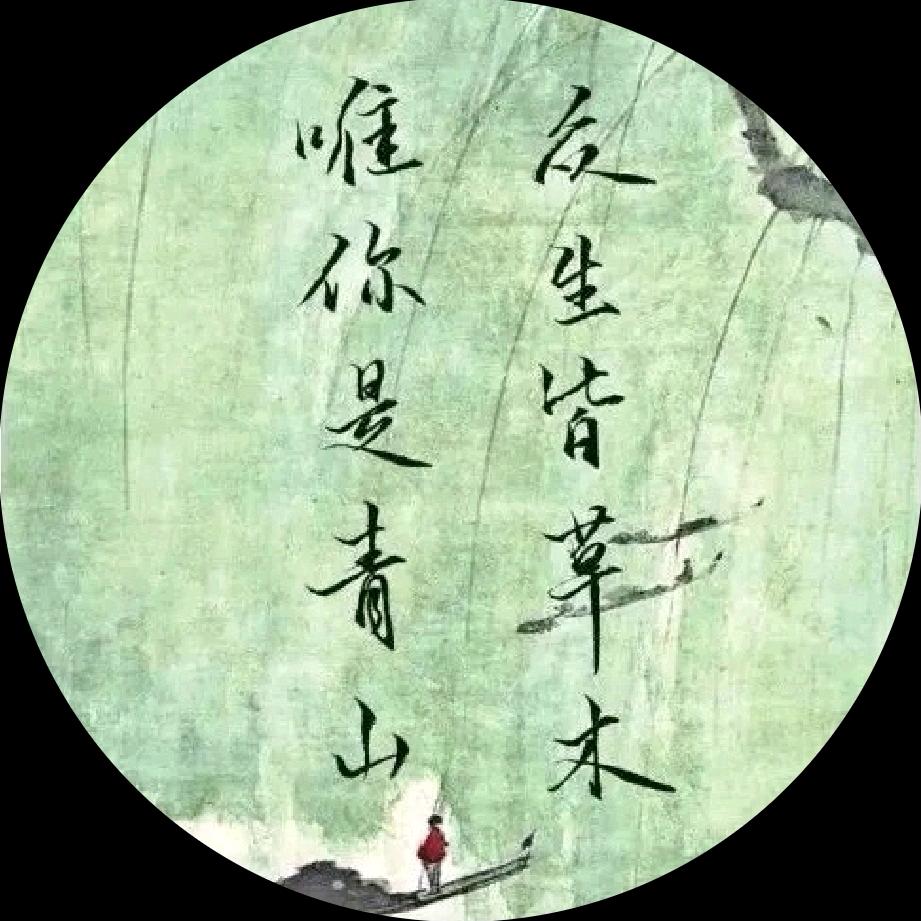 众生皆草木
唯你是青山